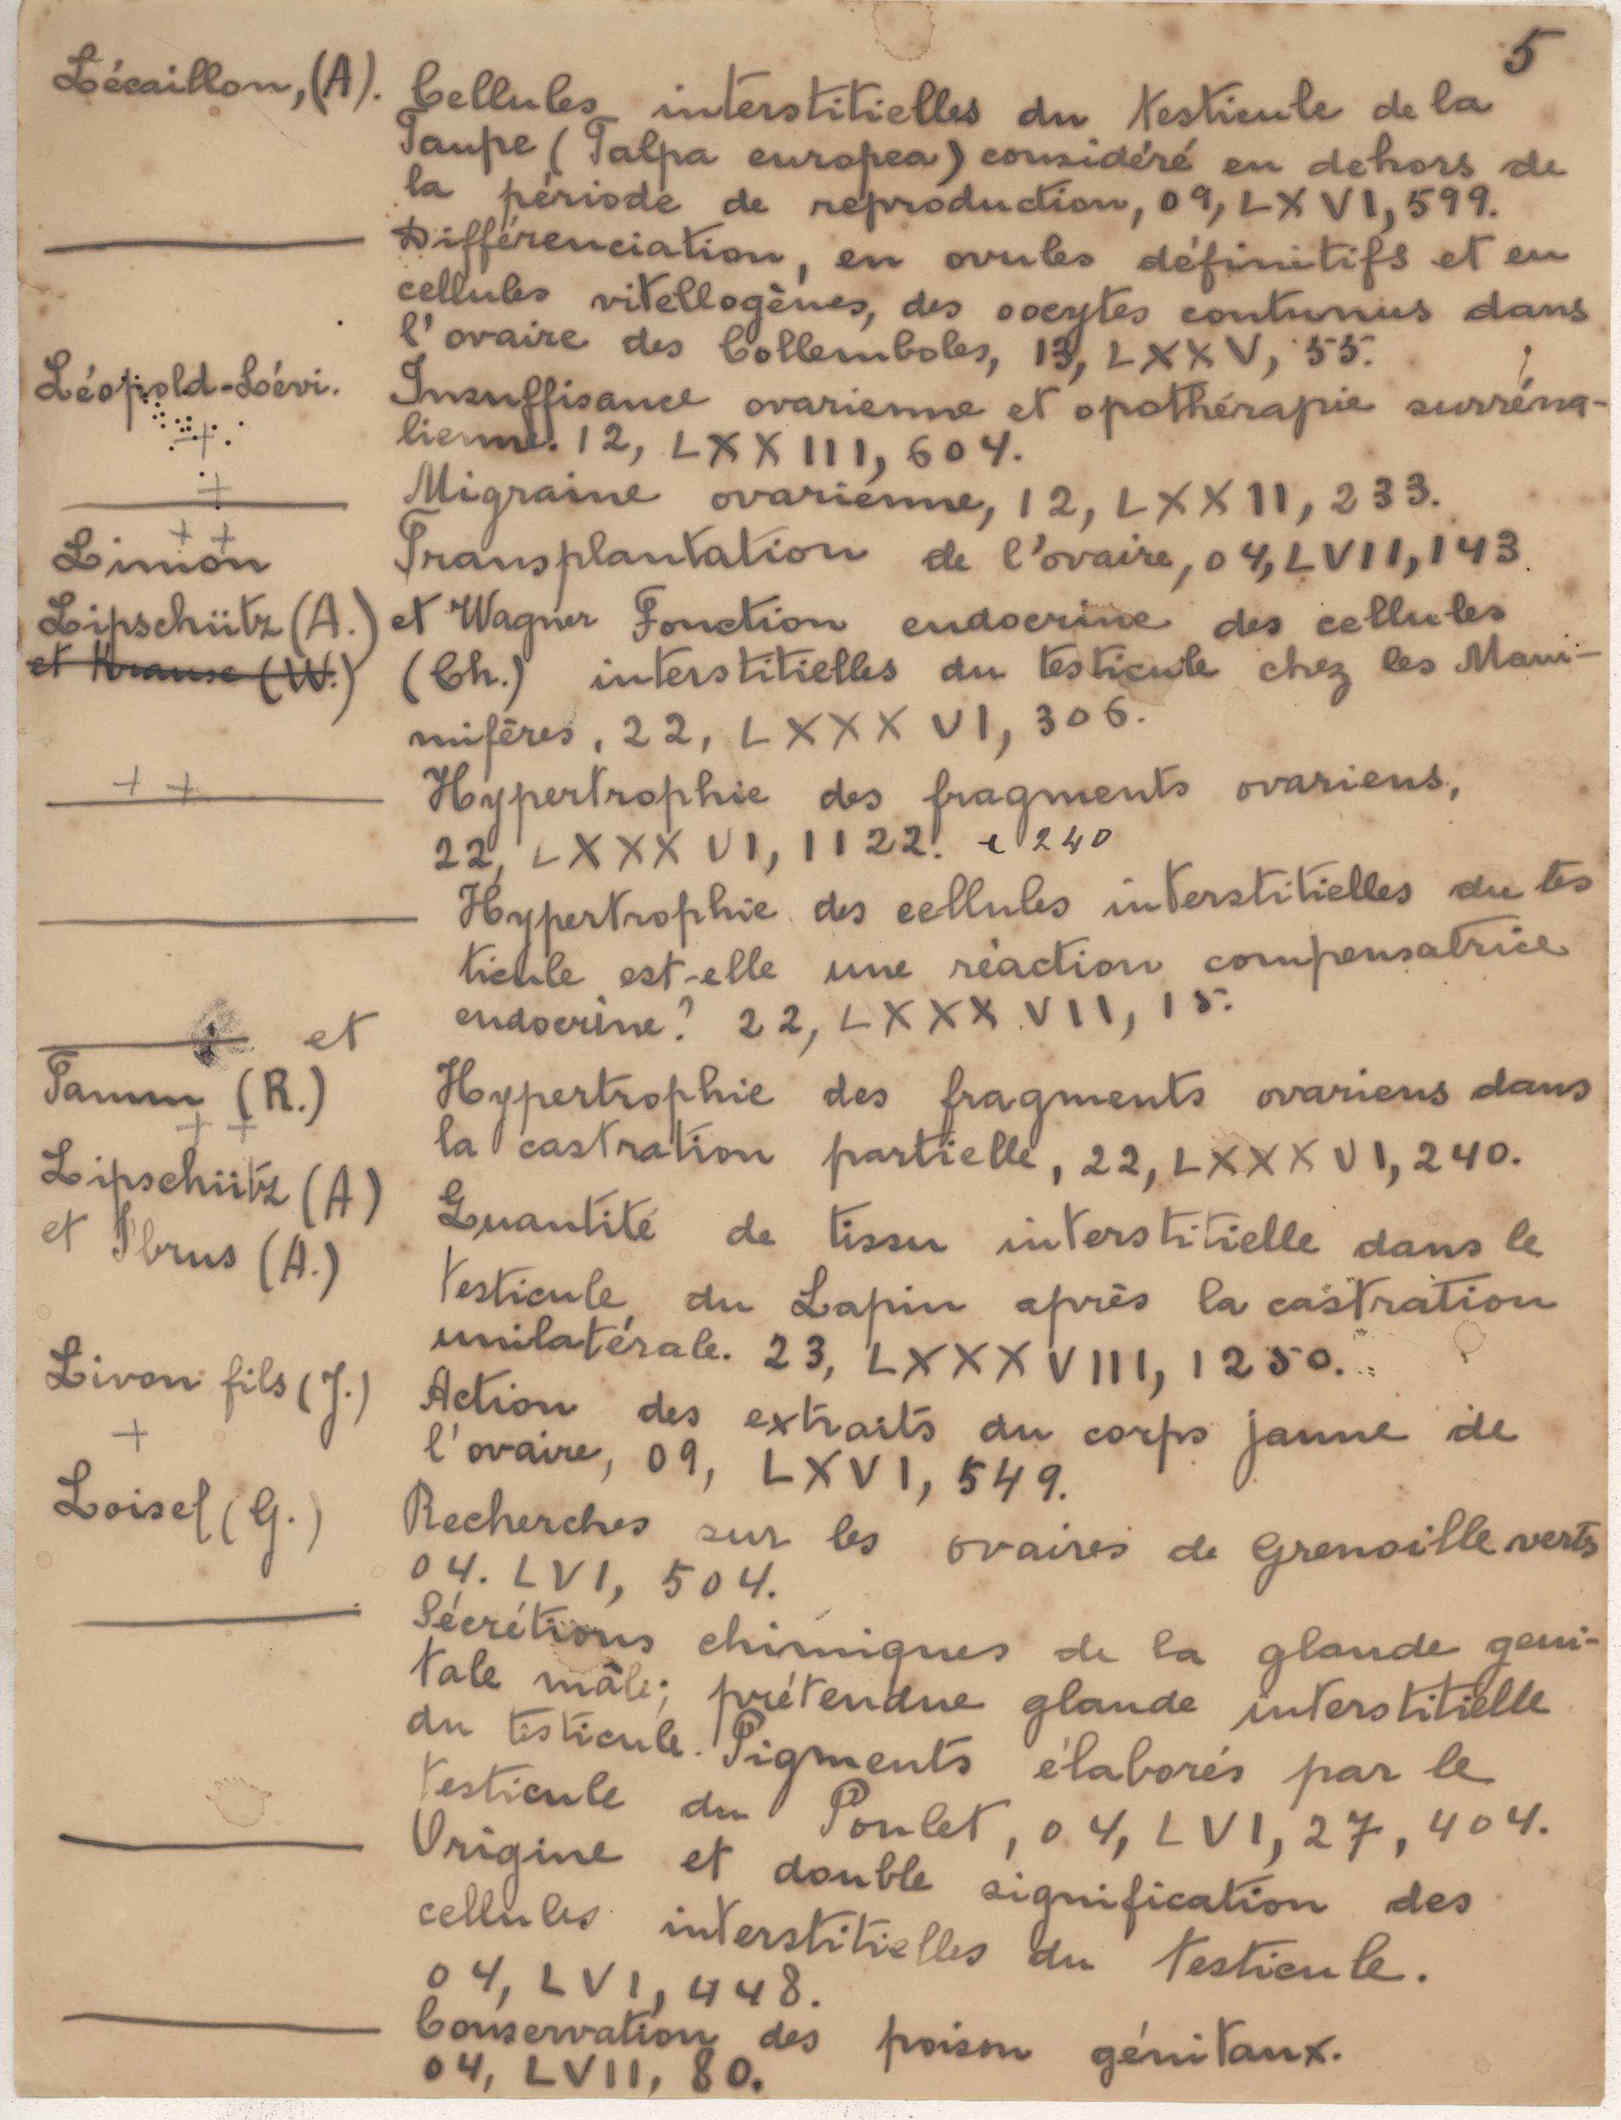 5
Lécaillon, (A). Cellules interstitielles du testicule de la
Taupe (Talpa europea) considéré en dehors de
la période de reproduction, 09, LXVI, 599.
Différenciation, en ovules définitifs et en
cellules vitellogènes, des oocytes contunus dans
l'ovaire des Collemboles, 13, LXXV, 55.
Léopold-Lévi. Insuffisance ovarienne et opothérapie surréna-
lienne. 12, LXXIII, 604.
Migraine ovarienne, 12, LXXII, 233.
Limon Transplantation de l'ovaire, 04, LVII, 143
Lipschütz (A.) et Wagner Fonction endocrine des cellules
et Krause (W.) (Ch.) interstitielles du testicule chez les Mam-
mifères, 22, LXXXVI, 306.
++ Hypertrophie des fragments ovariens,
22, LXXXVI, 1122. e 240
Hypertrophie des cellules interstitielles du tes
ticule est-elle une réaction compensatrice
endocrine? 22, LXXXVII, 15.
et
Tamm (R.) Hypertrophie des fragments ovariens dans
la castration partielle, 22, LXXXVI, 240.
Lipschütz (A) Quantité de tissu interstitielle dans le
et Ibrus (A.) testicule du Lapin après la castration
unilatérale. 23, LXXXVIII, 1250.
Livon fils (J.) Action des extraits du corps jaune de
+ l'ovaire, 09, LXVI, 549.
Loisel (G.) Recherches sur les ovaires de Grenoille verts
04. LVI, 504.
Sécrétions chimiques de la glande geni-
tale mâle; prétendue glande interstitielle
du testicule. Pigments élaborés par le
testicule du Poulet, 04, LVI, 27, 404.
Origine et double signification des
cellules interstitielles du testicule.
04, LVI, 448.
Conservation des poison génitaux.
04, LVII, 80.